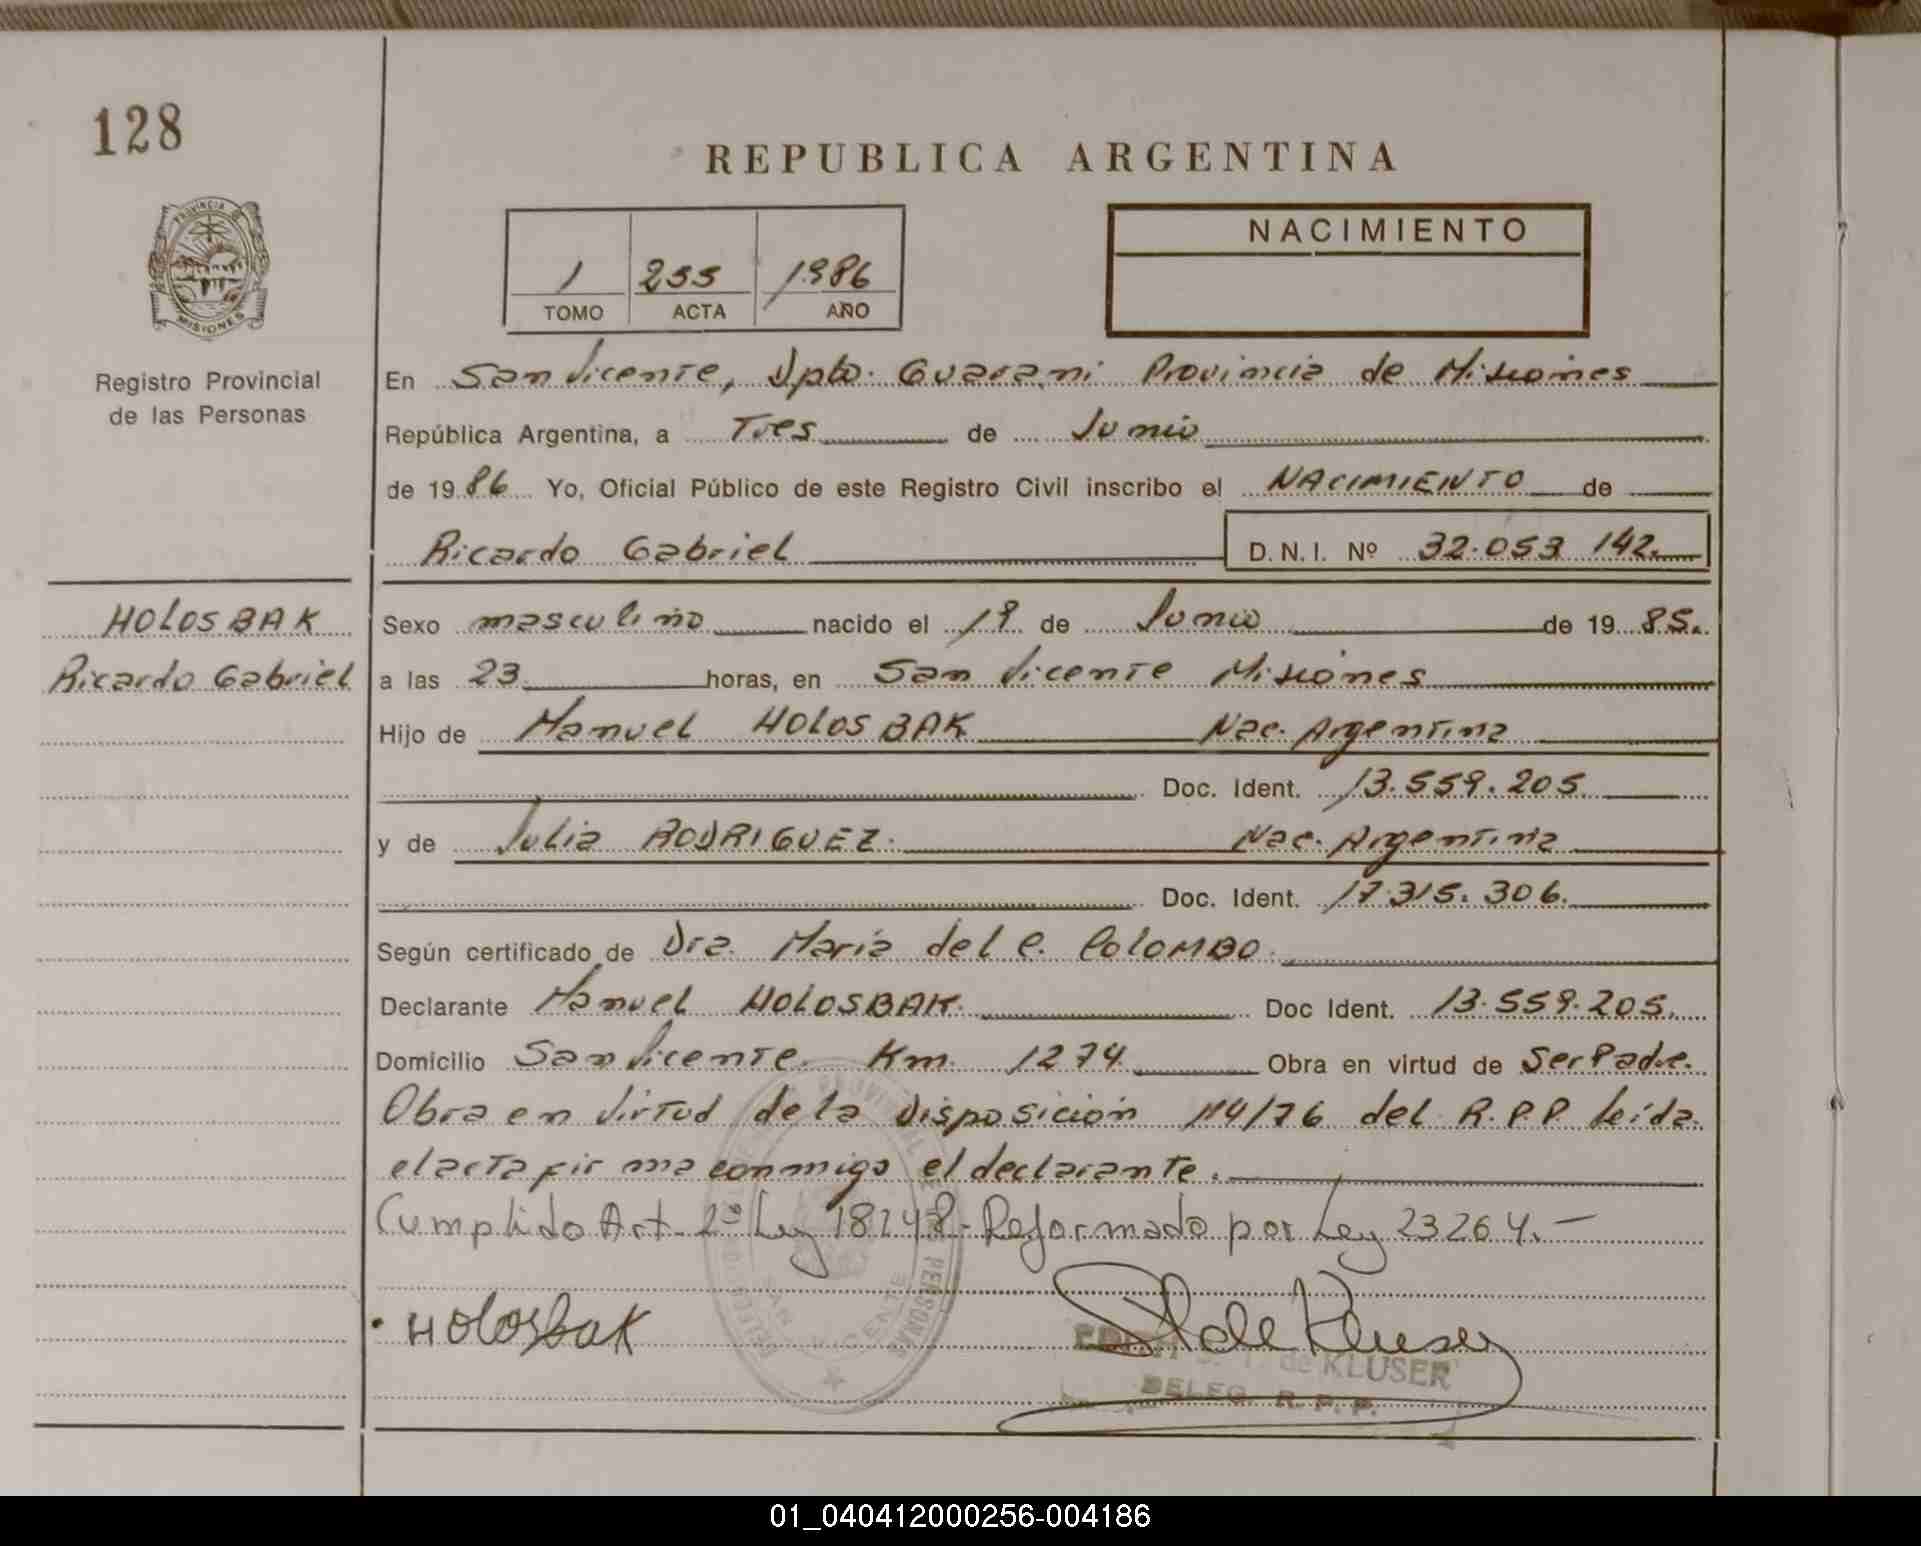 128
REPUBLICA ARGENTINA
PROVINCIA DE
MISIONES
Registro Provincial
de las Personas
1 255 1986
TOMO ACTA AÑO
NACIMIENTO
En San Vicente, Dpto. Guarani Provincia de Misiones
República Argentina, a Tres de Junio
de 1986 Yo, Oficial Público de este Registro Civil inscribo el NACIMIENTO de
Ricardo Gabriel D.N.I. Nº 32.053 142.
HOLOSBAK
Ricardo Gabriel
Sexo masculino nacido el 19 de Junio de 1985.
a las 23 horas, en San Vicente Misiones
Hijo de Manuel HOLOSBAK Nac. Argentina
Doc. Ident. 13.559.205.
y de Julia RODRIGUEZ. Nac. Argentina
Doc. Ident. 17.315.306.
Según certificado de Dra. María del C. COLOMBO.
Declarante Manuel HOLOSBAK. Doc Ident. 13.559.205.
Domicilio San Vicente Km. 1274 Obra en virtud de Ser Padre.
Obra en Virtud de la Disposición 114/76 del R.P.P leída
el acta firma conmigo el declarante.
Cumplido Art. 2º Ley 18248 - Reformado por Ley 23264.-
Holosbak
de Kluser
de KLUSER
DELEG. R. P. P.
SAN VICENTE
01_040412000256-004186